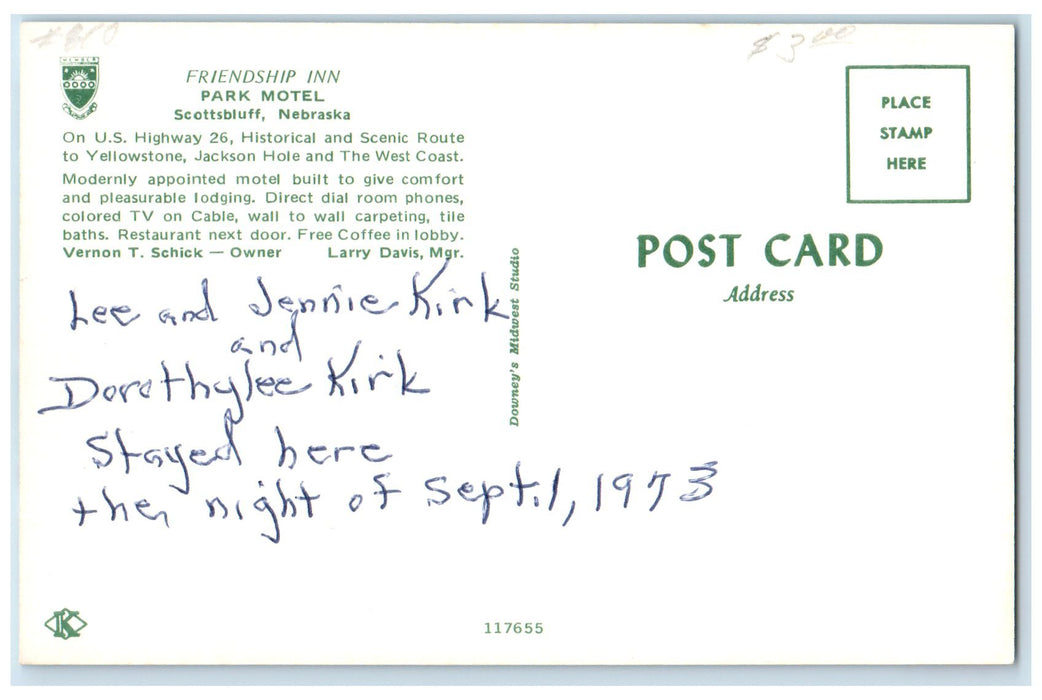 $3.00
MEMBER
FRIENDSHIP INN
PARK MOTEL
Scottsbluff, Nebraska
On U.S. Highway 26, Historical and Scenic Route
to Yellowstone, Jackson Hole and The West Coast.
Modernly appointed motel built to give comfort
and pleasurable lodging. Direct dial room phones,
colored TV on Cable, wall to wall carpeting, tile
baths. Restaurant next door. Free Coffee in lobby.
Vernon T. Schick — Owner Larry Davis, Mgr.
Lee and Jennie Kirk
and
Dorothylee Kirk
Stayed here
the night of Sept.1, 1973
Downey's Midwest Studio
PLACE
STAMP
HERE
POST CARD
Address
K
117655